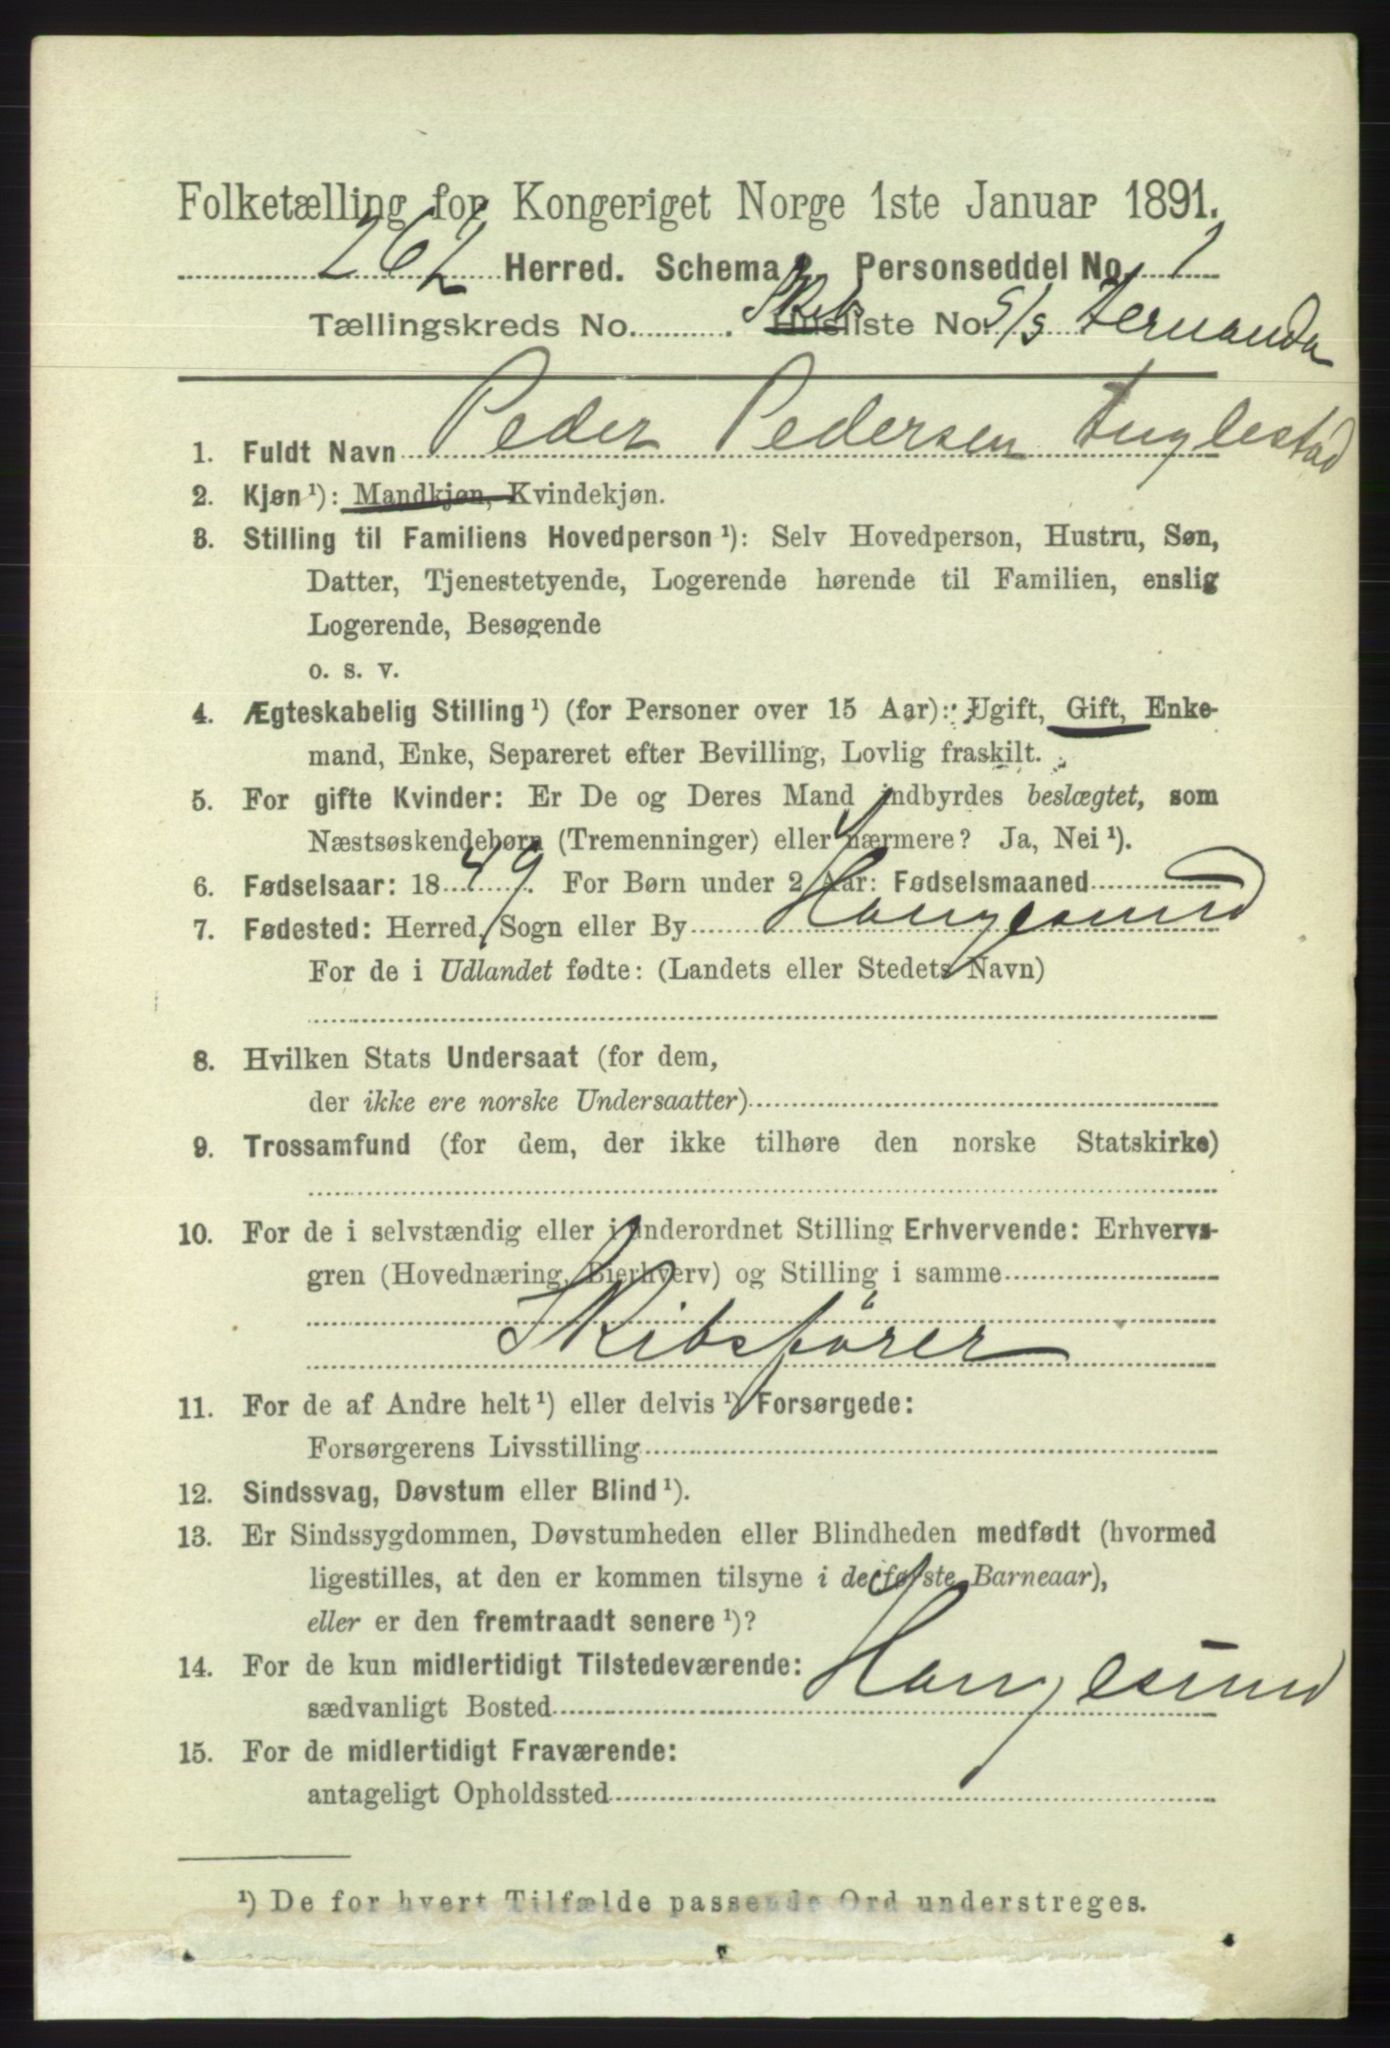 Folketælling for Kongeriget Norge 1ste Januar 1891.
262 Herred. Schema 2 Personseddel No. 1
Tællingskreds No. . Skibsliste No. S/S Fernanda
1. Fuldt Navn Peder Pedersen Fuglestad
2. Kjøn ¹): Mandkjøn, Kvindekjøn.
3. Stilling til Familiens Hovedperson ¹): Selv Hovedperson, Hustru, Søn,
Datter, Tjenestetyende, Logerende hørende til Familien, enslig
Logerende, Besøgende
o. s. v.
4. Ægteskabelig Stilling ¹) (for Personer over 15 Aar): Ugift, Gift, Enke-
mand, Enke, Separeret efter Bevilling, Lovlig fraskilt.
5. For gifte Kvinder: Er De og Deres Mand indbyrdes beslægtet, som
Næstsøskendebørn (Tremenninger) eller nærmere? Ja, Nei ¹).
6. Fødselsaar: 1849. For Børn under 2 Aar: Fødselsmaaned
7. Fødested: Herred, Sogn eller By Haugesund
For de i Udlandet fødte: (Landets eller Stedets Navn)
8. Hvilken Stats Undersaat (for dem,
der ikke ere norske Undersaatter)
9. Trossamfund (for dem, der ikke tilhøre den norske Statskirke)
10. For de i selvstændig eller i underordnet Stilling Erhvervende: Erhvervs-
gren (Hovednæring, Bierhverv) og Stilling i samme
Skibsfører
11. For de af Andre helt ¹) eller delvis ¹) Forsørgede:
Forsørgerens Livsstilling
12. Sindssvag, Døvstum eller Blind ¹).
13. Er Sindssygdommen, Døvstumheden eller Blindheden medfødt (hvormed
ligestilles, at den er kommen tilsyne i de første Barneaar),
eller er den fremtraadt senere ¹)?
14. For de kun midlertidigt Tilstedeværende:
sædvanligt Bosted Haugesund
15. For de midlertidigt Fraværende:
antageligt Opholdssted
¹) De for hvert Tilfælde passende Ord understreges.